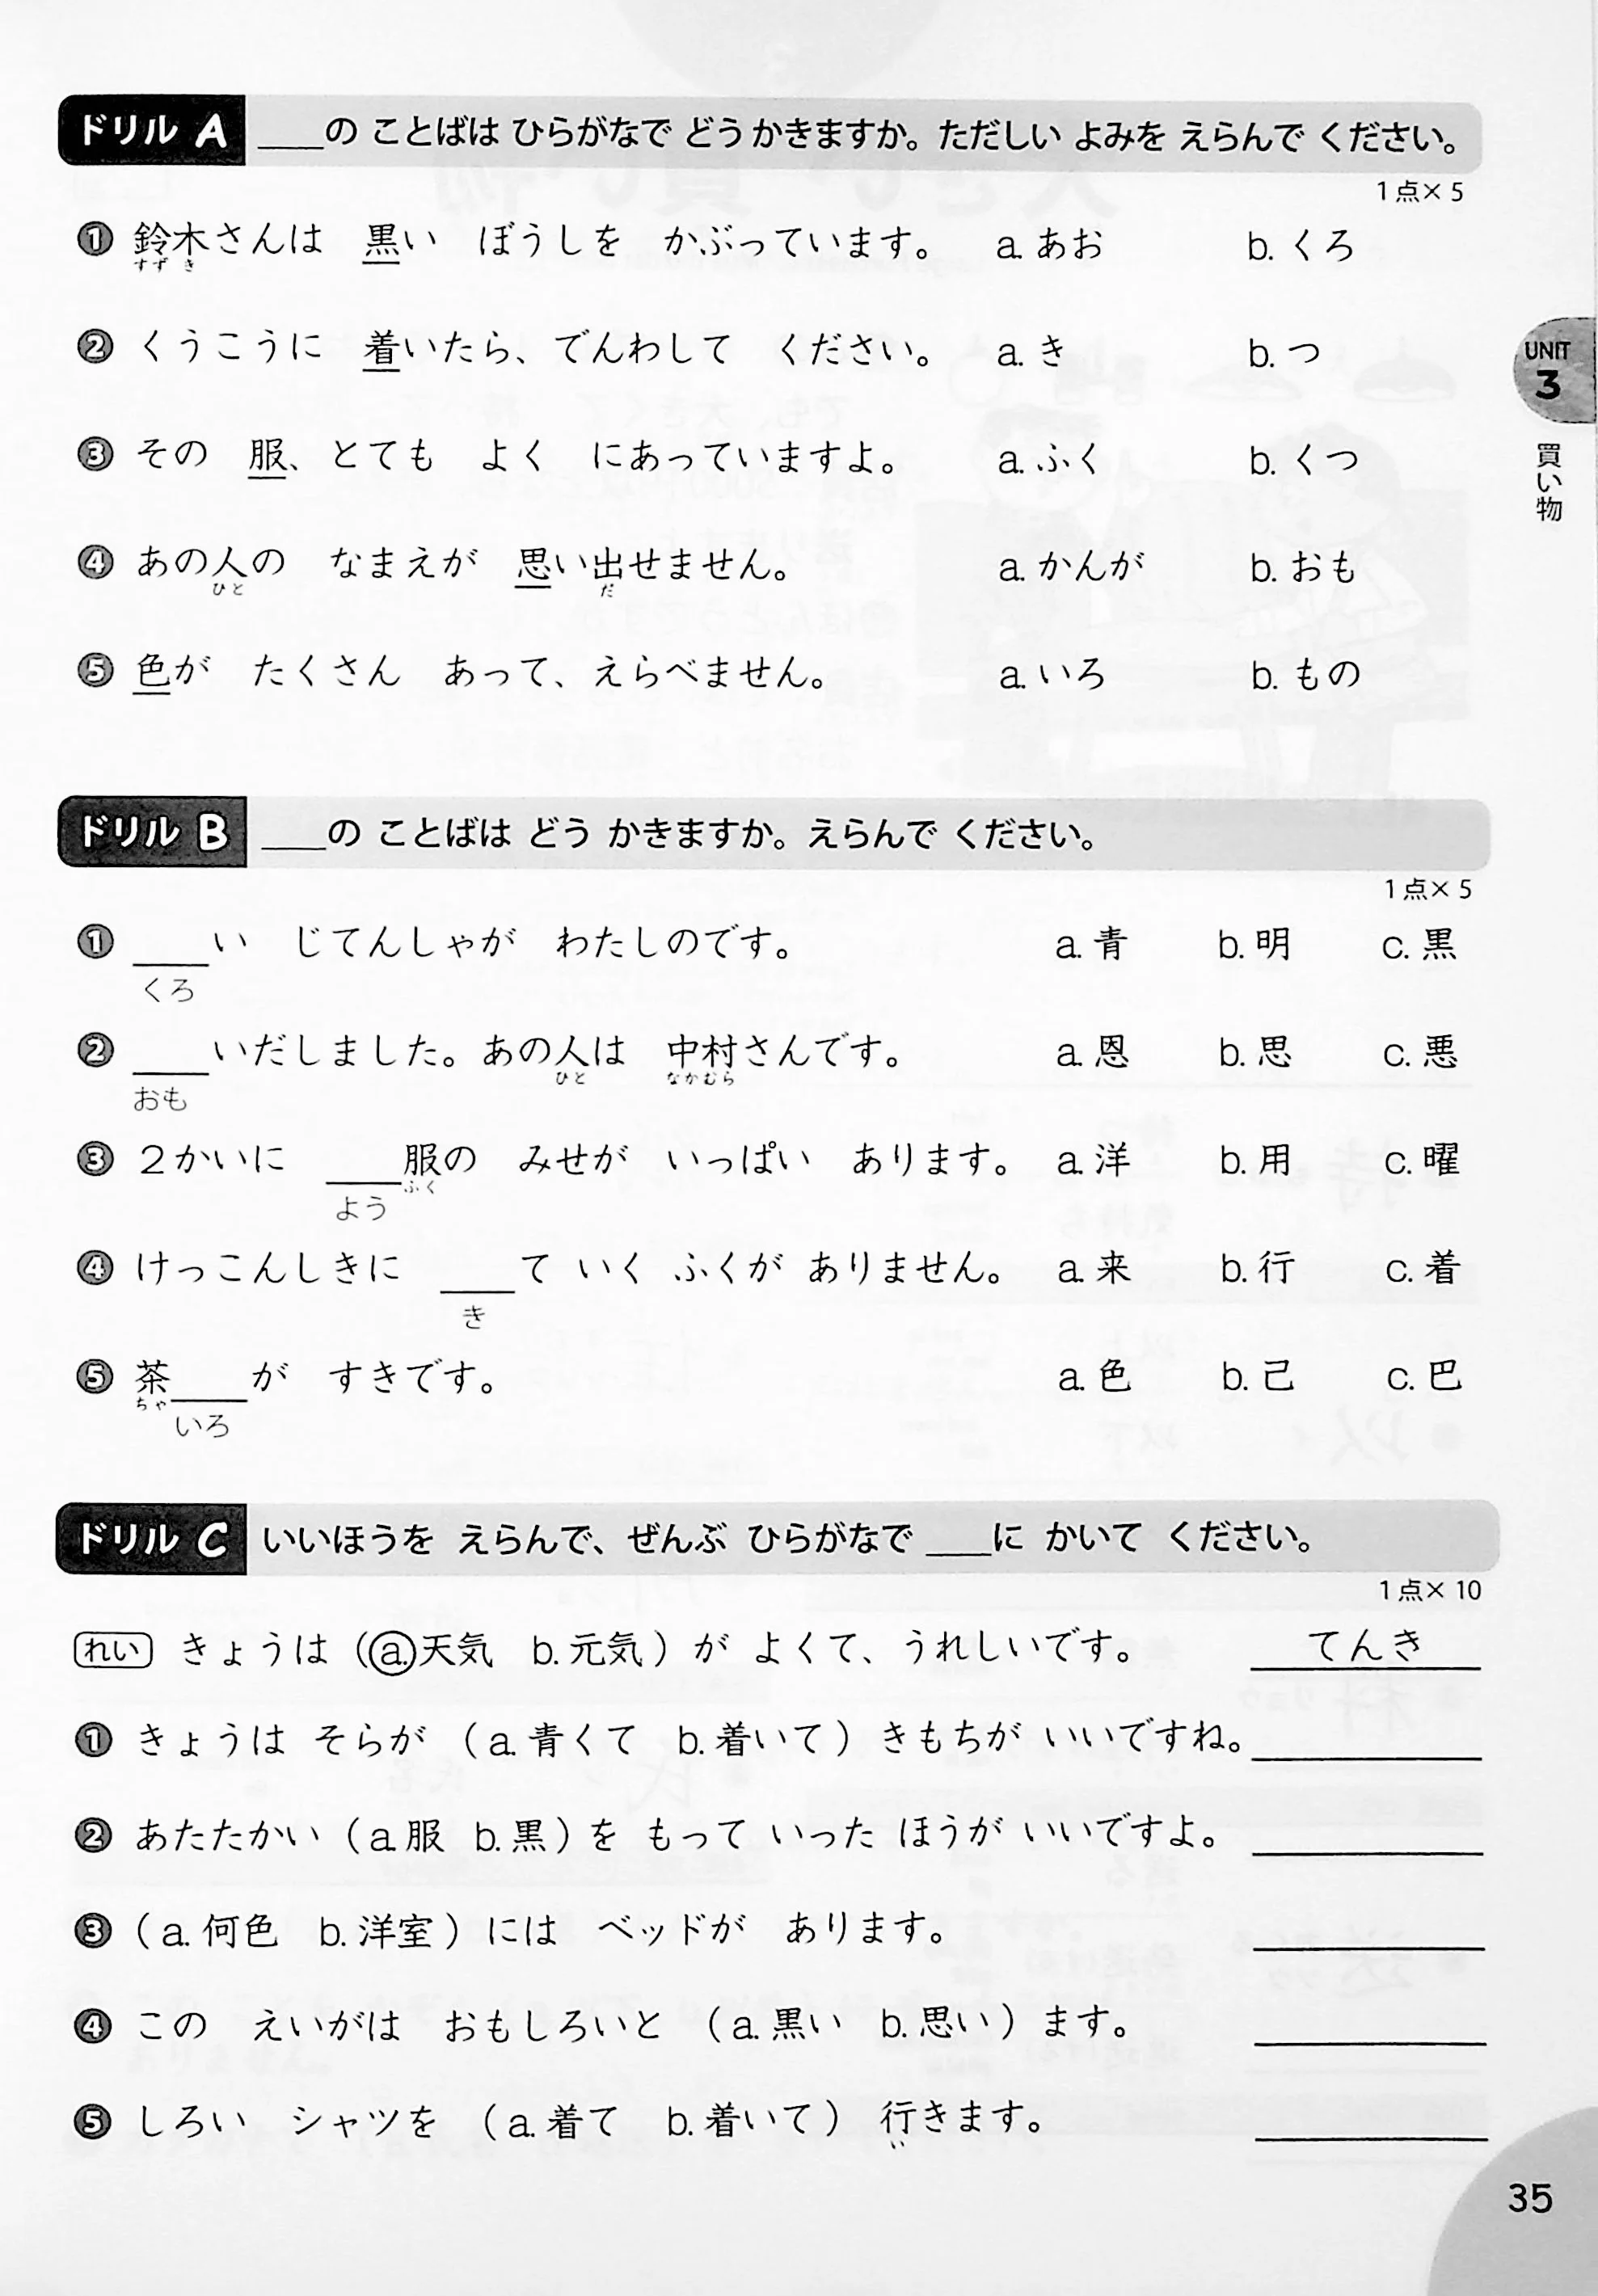 ドリル A ＿＿の ことばは ひらがなで どう かきますか。ただしい よみを えらんで ください。
1点×5
① 鈴木さんは 黒い ぼうしを かぶっています。 a. あお b. くろ
すず き
② くうこうに 着いたら、でんわして ください。 a. き b. つ
③ その 服、とても よく にあっていますよ。 a. ふく b. くつ
④ あの人の なまえが 思い出せません。 a. かんが b. おも
ひと だ
⑤ 色が たくさん あって、えらべません。 a. いろ b. もの
UNIT
3
買い物
ドリル B ＿＿の ことばは どう かきますか。えらんで ください。
1点×5
① ＿＿い じてんしゃが わたしのです。 a. 青 b. 明 c. 黒
くろ
② ＿＿いだしました。あの人は 中村さんです。 a. 恩 b. 思 c. 悪
おも ひと なかむら
③ 2かいに ＿＿服の みせが いっぱい あります。 a. 洋 b. 用 c. 曜
よう ふく
④ けっこんしきに ＿＿て いく ふくが ありません。 a. 来 b. 行 c. 着
き
⑤ 茶＿＿が すきです。 a. 色 b. 己 c. 巴
ちゃ いろ
ドリル C いいほうを えらんで、ぜんぶ ひらがなで ＿＿に かいて ください。
1点×10
れい きょうは（a. 天気 b. 元気）が よくて、うれしいです。 てんき
① きょうは そらが （a. 青くて b. 着いて）きもちが いいですね。
② あたたかい（a. 服 b. 黒）を もって いった ほうが いいですよ。
③ （a. 何色 b. 洋室）には ベッドが あります。
④ この えいがは おもしろいと （a. 黒い b. 思い）ます。
⑤ しろい シャツを （a. 着て b. 着いて） 行きます。
い
35